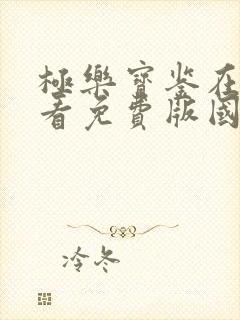 極樂寶鉴在
看免費版國
冷冬